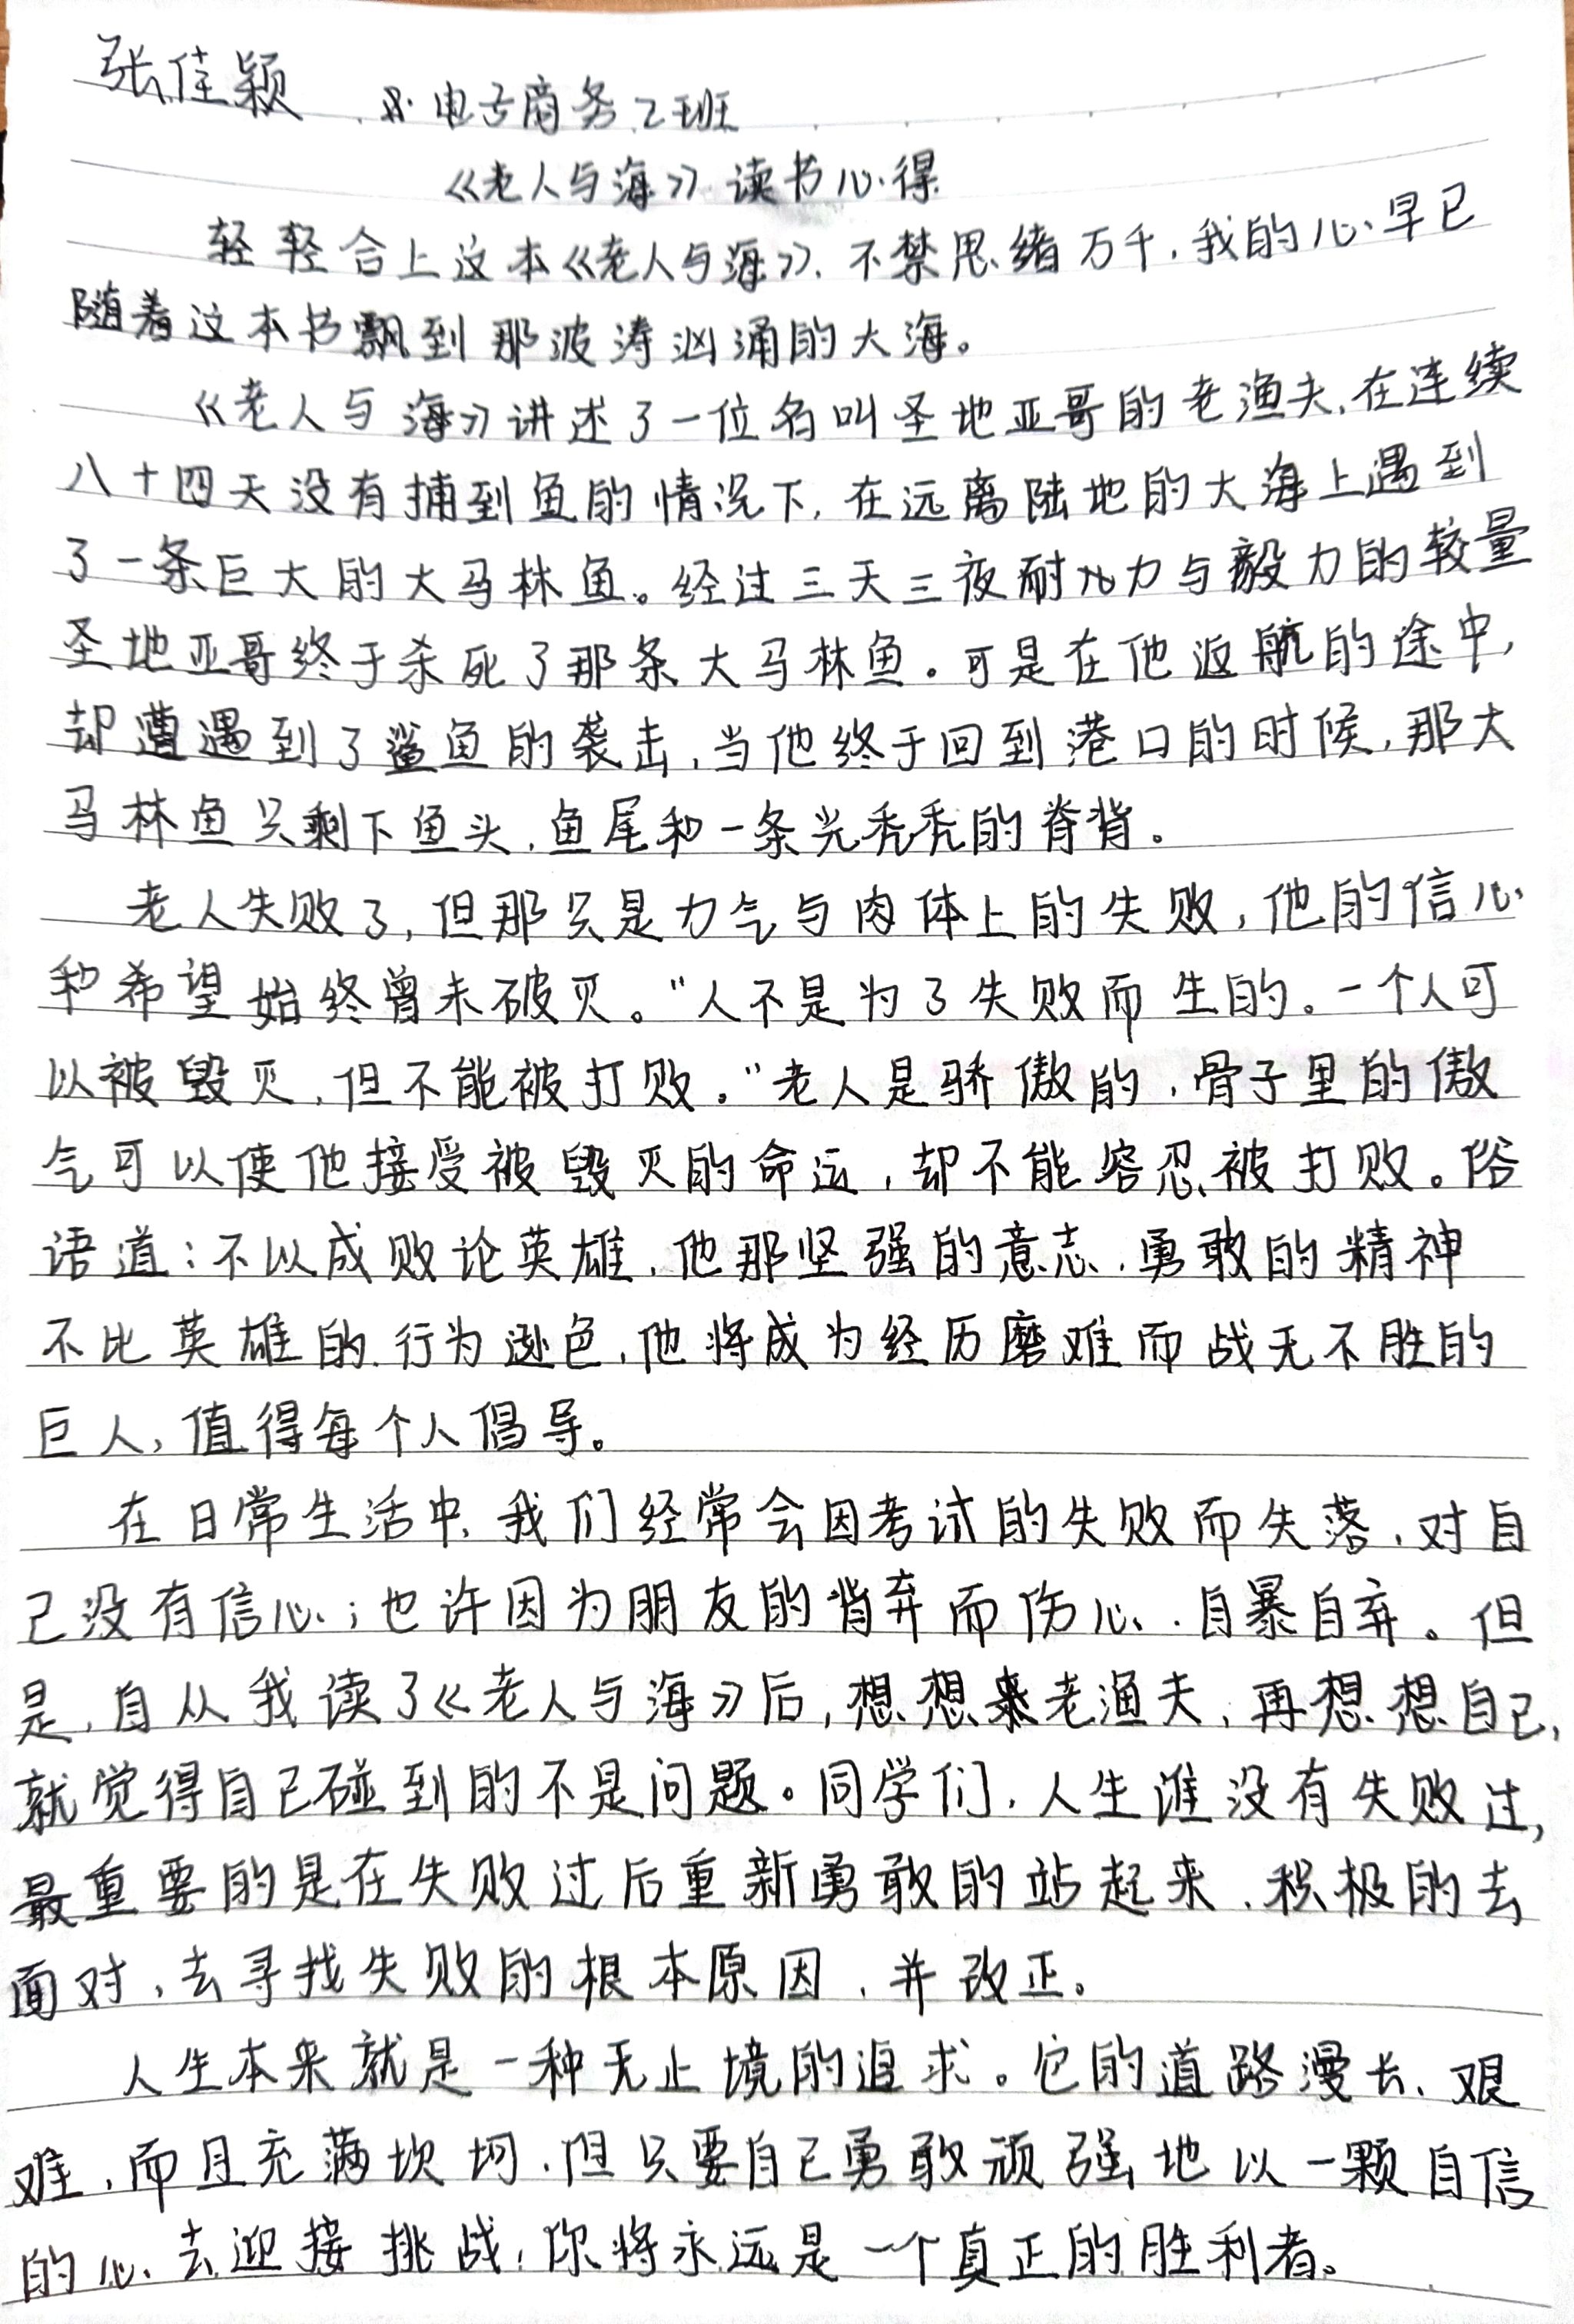 张佳颖 电子商务2班
《老人与海》读书心得
轻轻合上这本《老人与海》,不禁思绪万千,我的心早已
随着这本书飘到那波涛汹涌的大海。
《老人与海》讲述了一位名叫圣地亚哥的老渔夫,在连续
八十四天没有捕到鱼的情况下,在远离陆地的大海上遇到
了一条巨大的大马林鱼。经过三天三夜耐力与毅力的较量
圣地亚哥终于杀死了那条大马林鱼。可是在他返航的途中,
却遭遇到了鲨鱼的袭击,当他终于回到港口的时候,那大
马林鱼只剩下鱼头,鱼尾和一条光秃秃的脊背。
老人失败了,但那只是力气与肉体上的失败,他的信心
和希望始终曾未破灭。"人不是为了失败而生的。一个人可
以被毁灭,但不能被打败。"老人是骄傲的,骨子里的傲
气可以使他接受被毁灭的命运,却不能容忍被打败。俗
语道:不以成败论英雄,他那坚强的意志,勇敢的精神
不比英雄的行为逊色,他将成为经历磨难而战无不胜的
巨人,值得每个人倡导。
在日常生活中,我们经常会因考试的失败而失落,对自
己没有信心;也许因为朋友的背弃而伤心,自暴自弃。但
是,自从我读了《老人与海》后,想想老渔夫,再想想自己,
就觉得自己碰到的不是问题。同学们,人生谁没有失败过,
最重要的是在失败过后重新勇敢的站起来,积极的去
面对,去寻找失败的根本原因,并改正。
人生本来就是一种无止境的追求。它的道路漫长、艰
难,而且充满坎坷,但只要自己勇敢顽强地以一颗自信
的心去迎接挑战,你将永远是一个真正的胜利者。